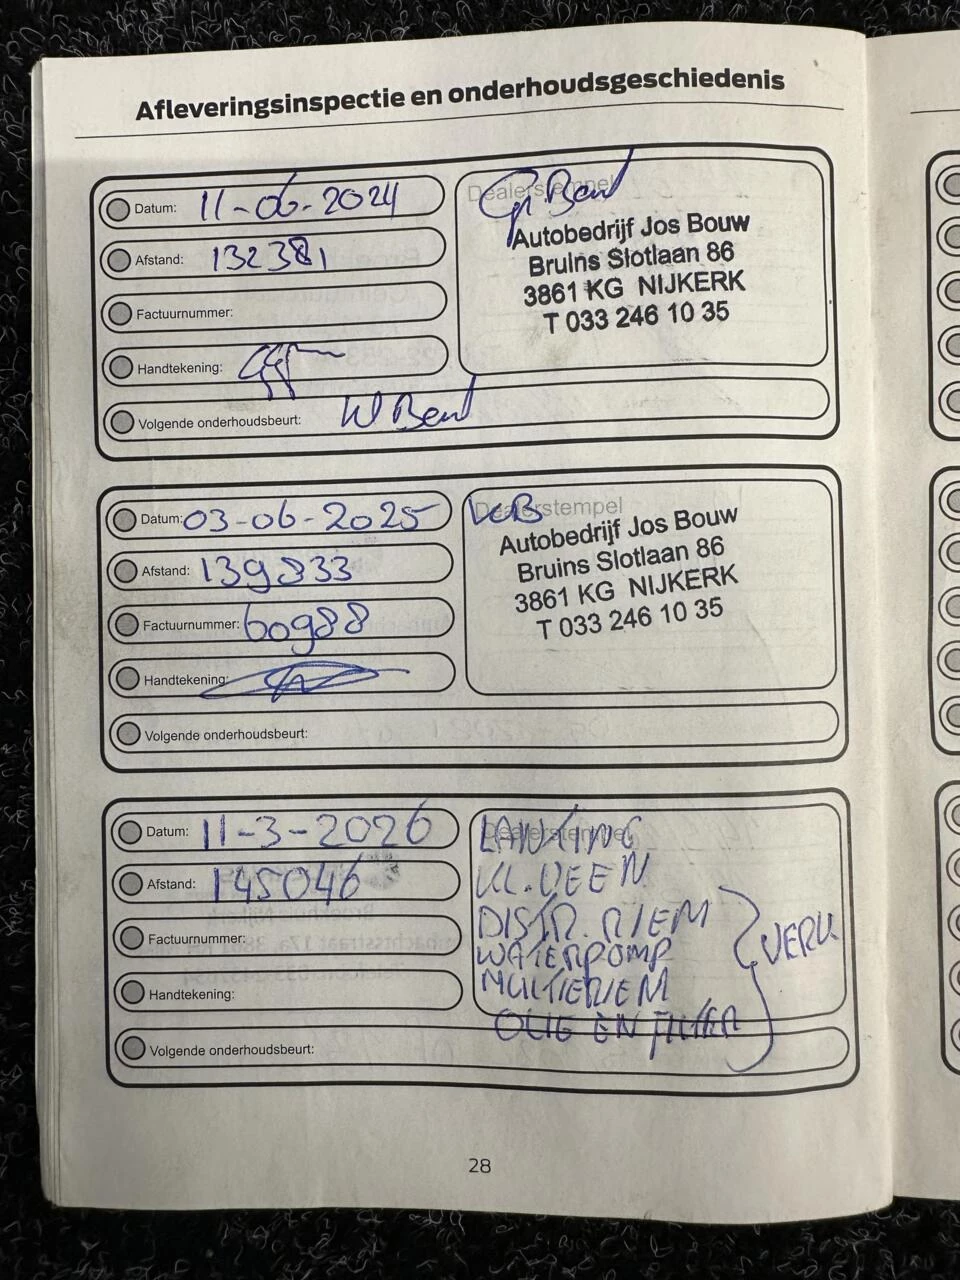 Afleveringsinspectie en onderhoudsgeschiedenis
Datum: 11-06-2024
Afstand: 132381
Factuurnummer:
Handtekening:
Volgende onderhoudsbeurt: W Beurt
Dealerstempel
Gr Beurt
Autobedrijf Jos Bouw
Bruins Slotlaan 86
3861 KG NIJKERK
T 033 246 10 35
Datum: 03-06-2025
Afstand: 139833
Factuurnummer: 60988
Handtekening:
Volgende onderhoudsbeurt:
Dealerstempel
Autobedrijf Jos Bouw
Bruins Slotlaan 86
3861 KG NIJKERK
T 033 246 10 35
Datum: 11-3-2026
Afstand: 145046
Factuurnummer:
Handtekening:
Volgende onderhoudsbeurt:
Dealerstempel
DISTR. RIEM
WATERPOMP
MULTIERIEM
OLIE EN FILTER
28